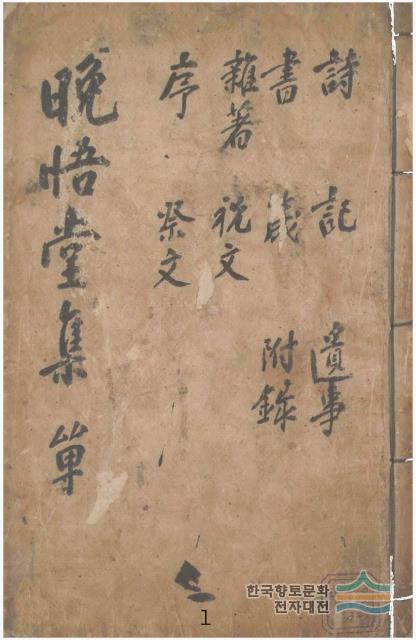 詩 記 遺事
書 附錄
雜著 祝文
序 祭文
晩悟堂集 單
1
한국향토문화
전자대전